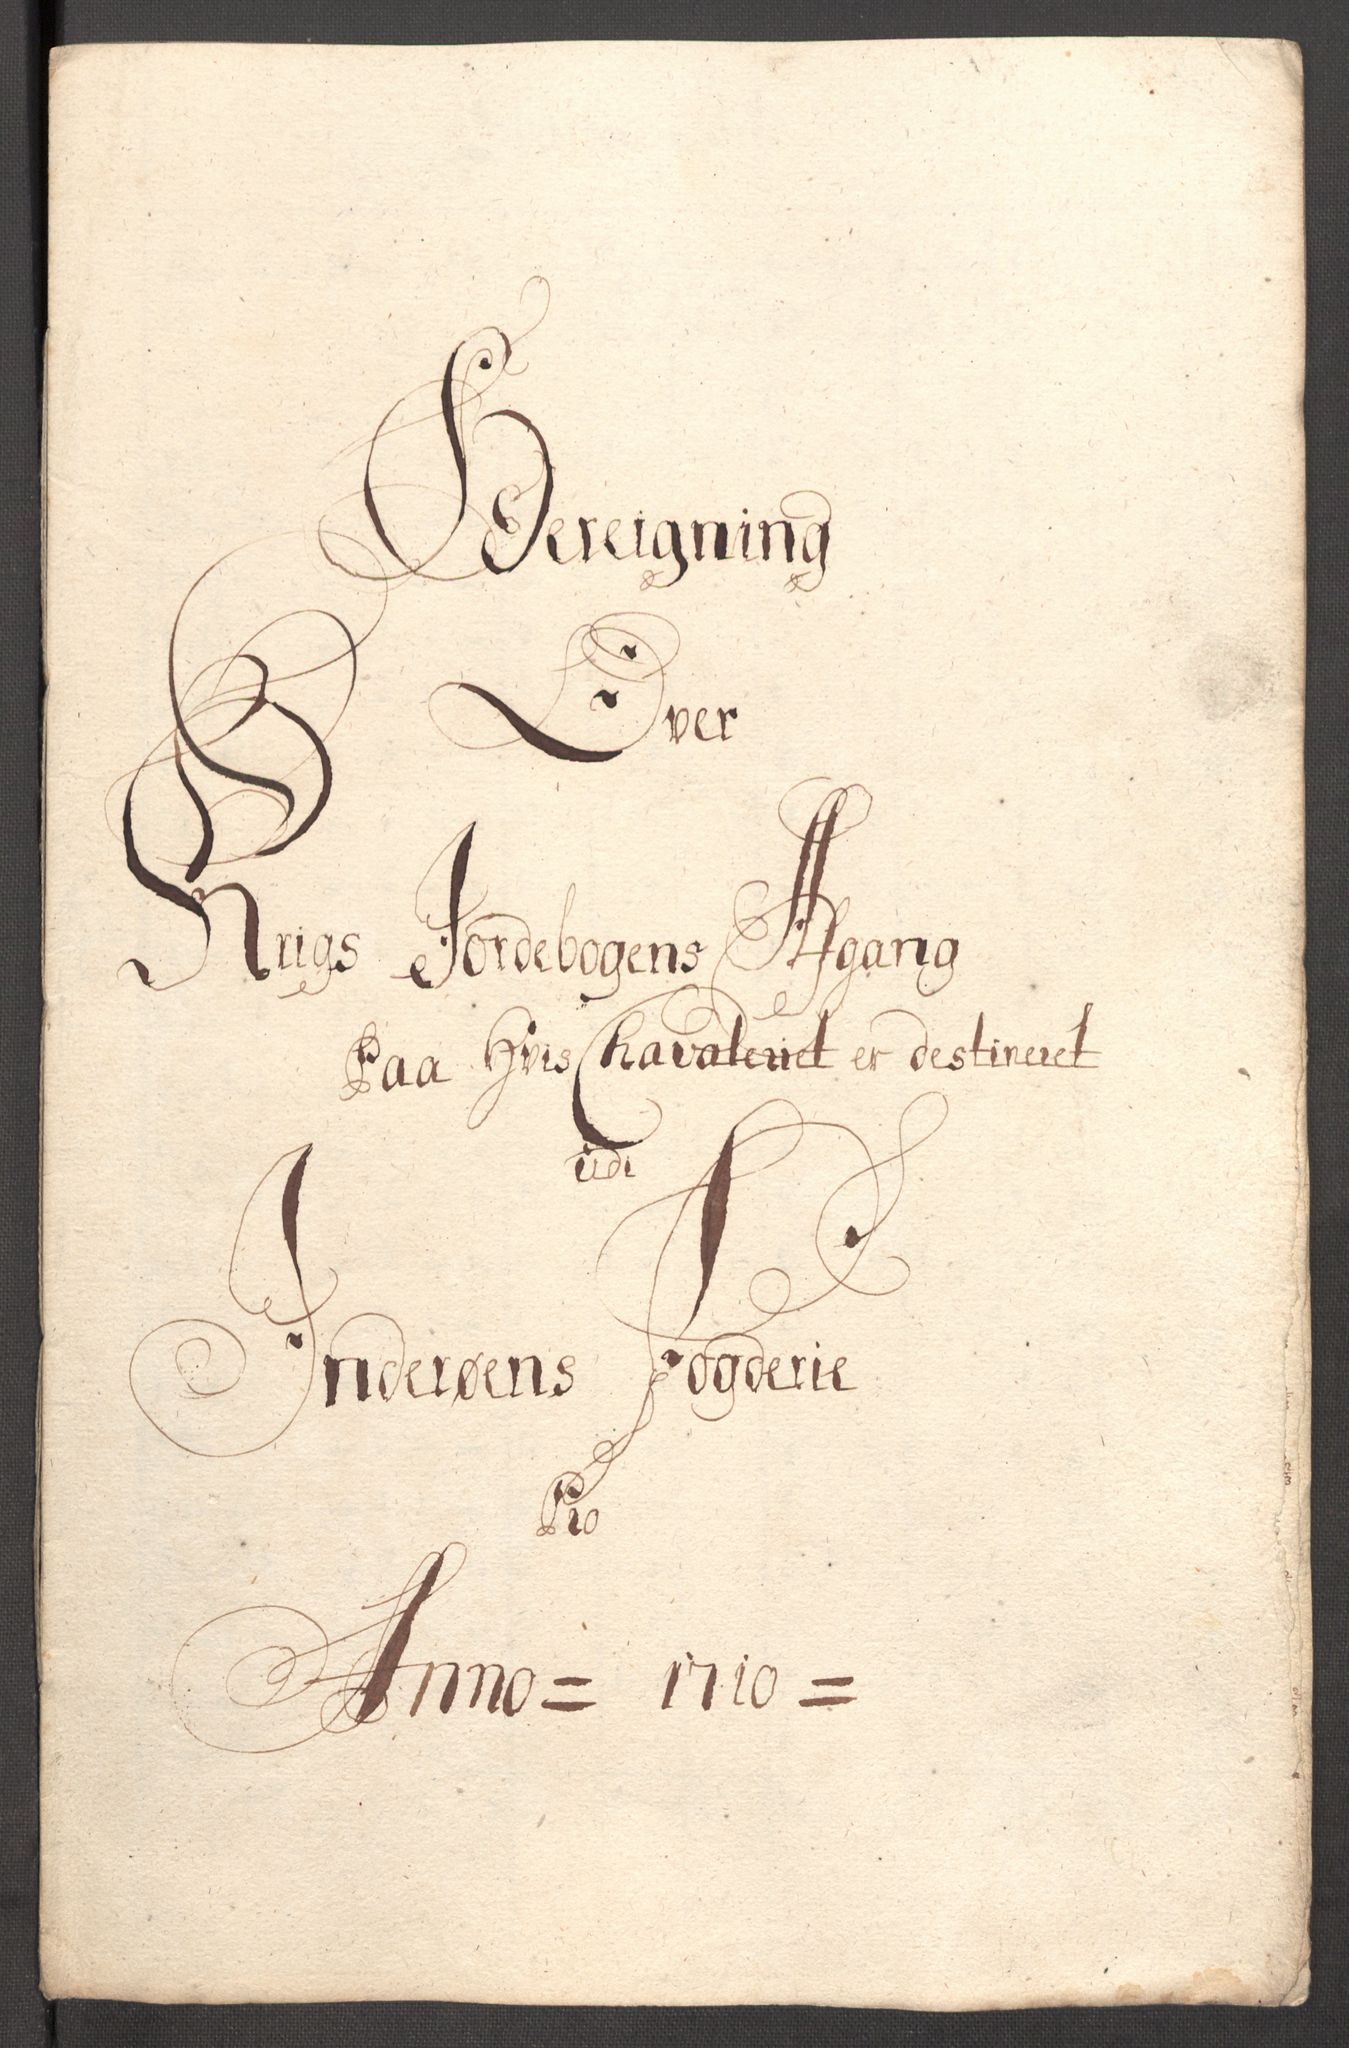 Bereigning
Over
Krigs Jordebogens Afgang
Paa Hvis Chavaleriet er destineret
udi
Inderøens Fogderie
Pro
Anno = 1710 =